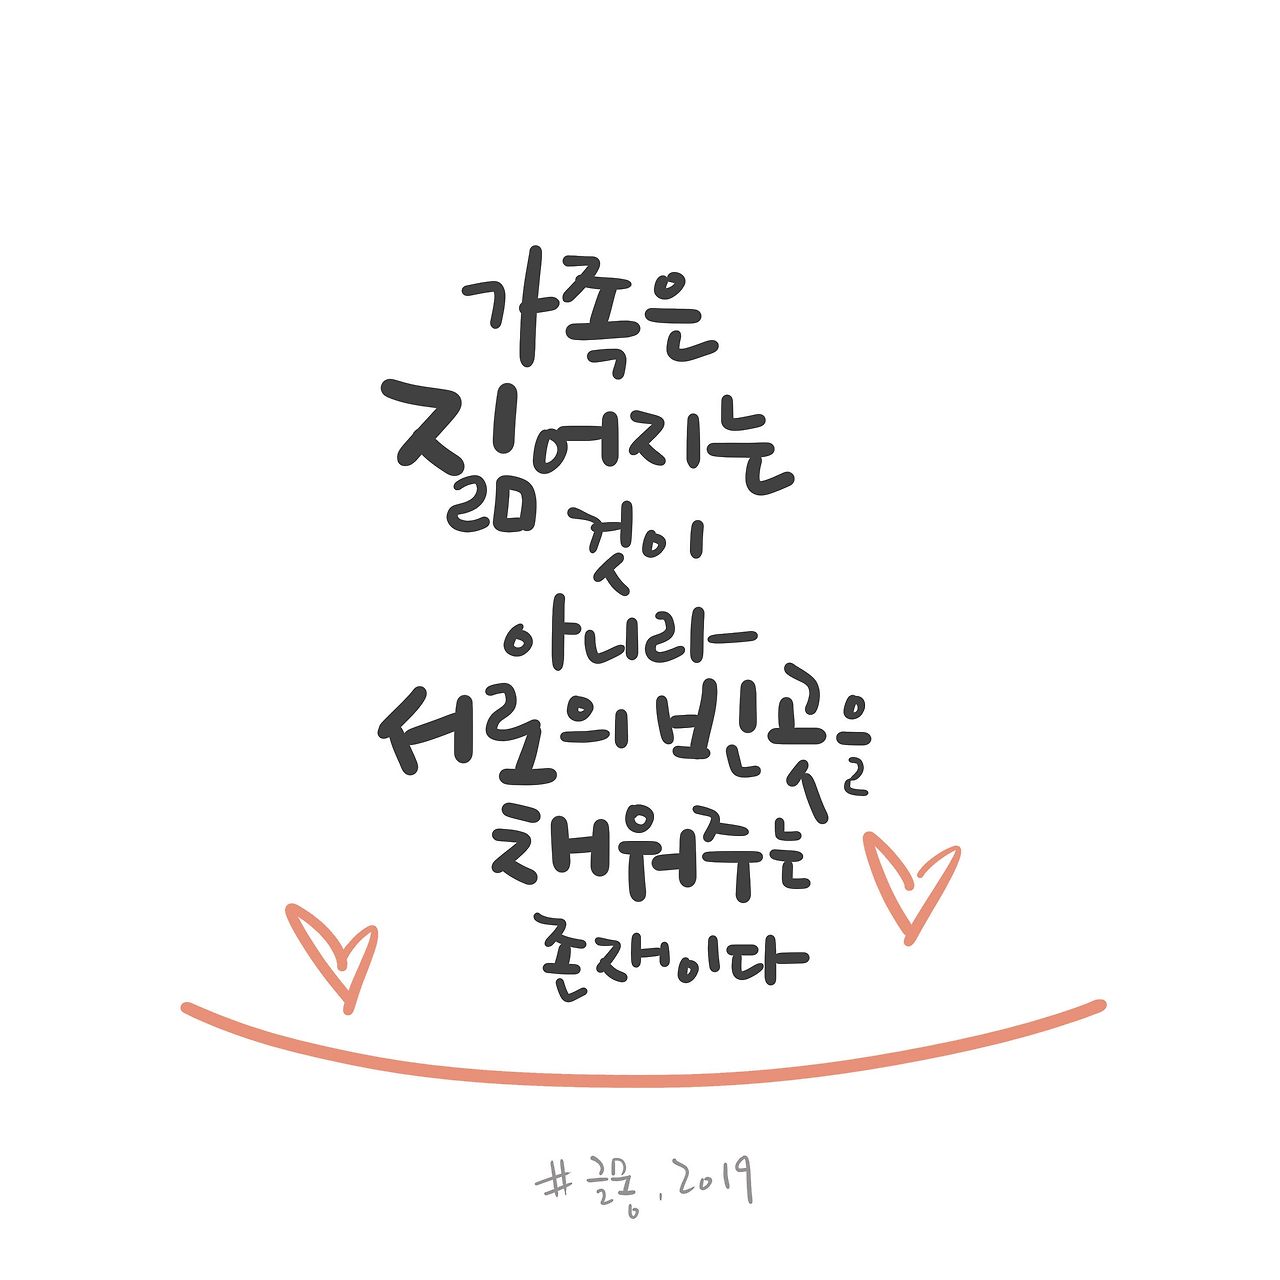 가족은
짊어지는
것이
아니라
서로의 빈곳을
채워주는
존재이다
#글몽. 2019